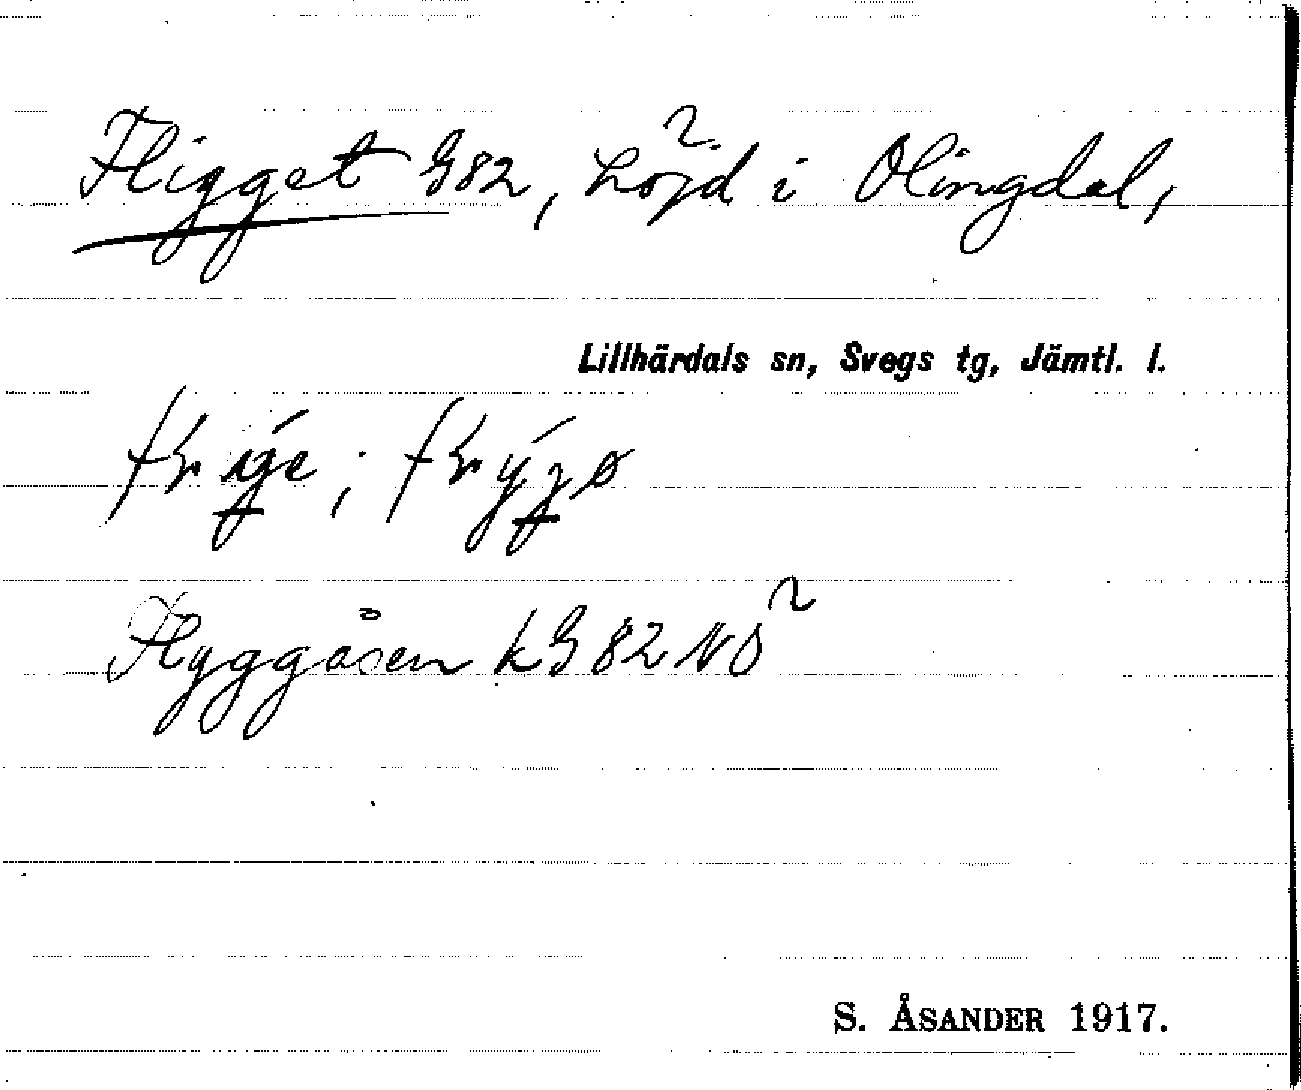 Fligget G82, höjd i Olingdal,
Lillhärdals sn, Svegs tg, Jämtl. l.
Flyggåsen kG 82 NO
S. ÅSANDER 1917.